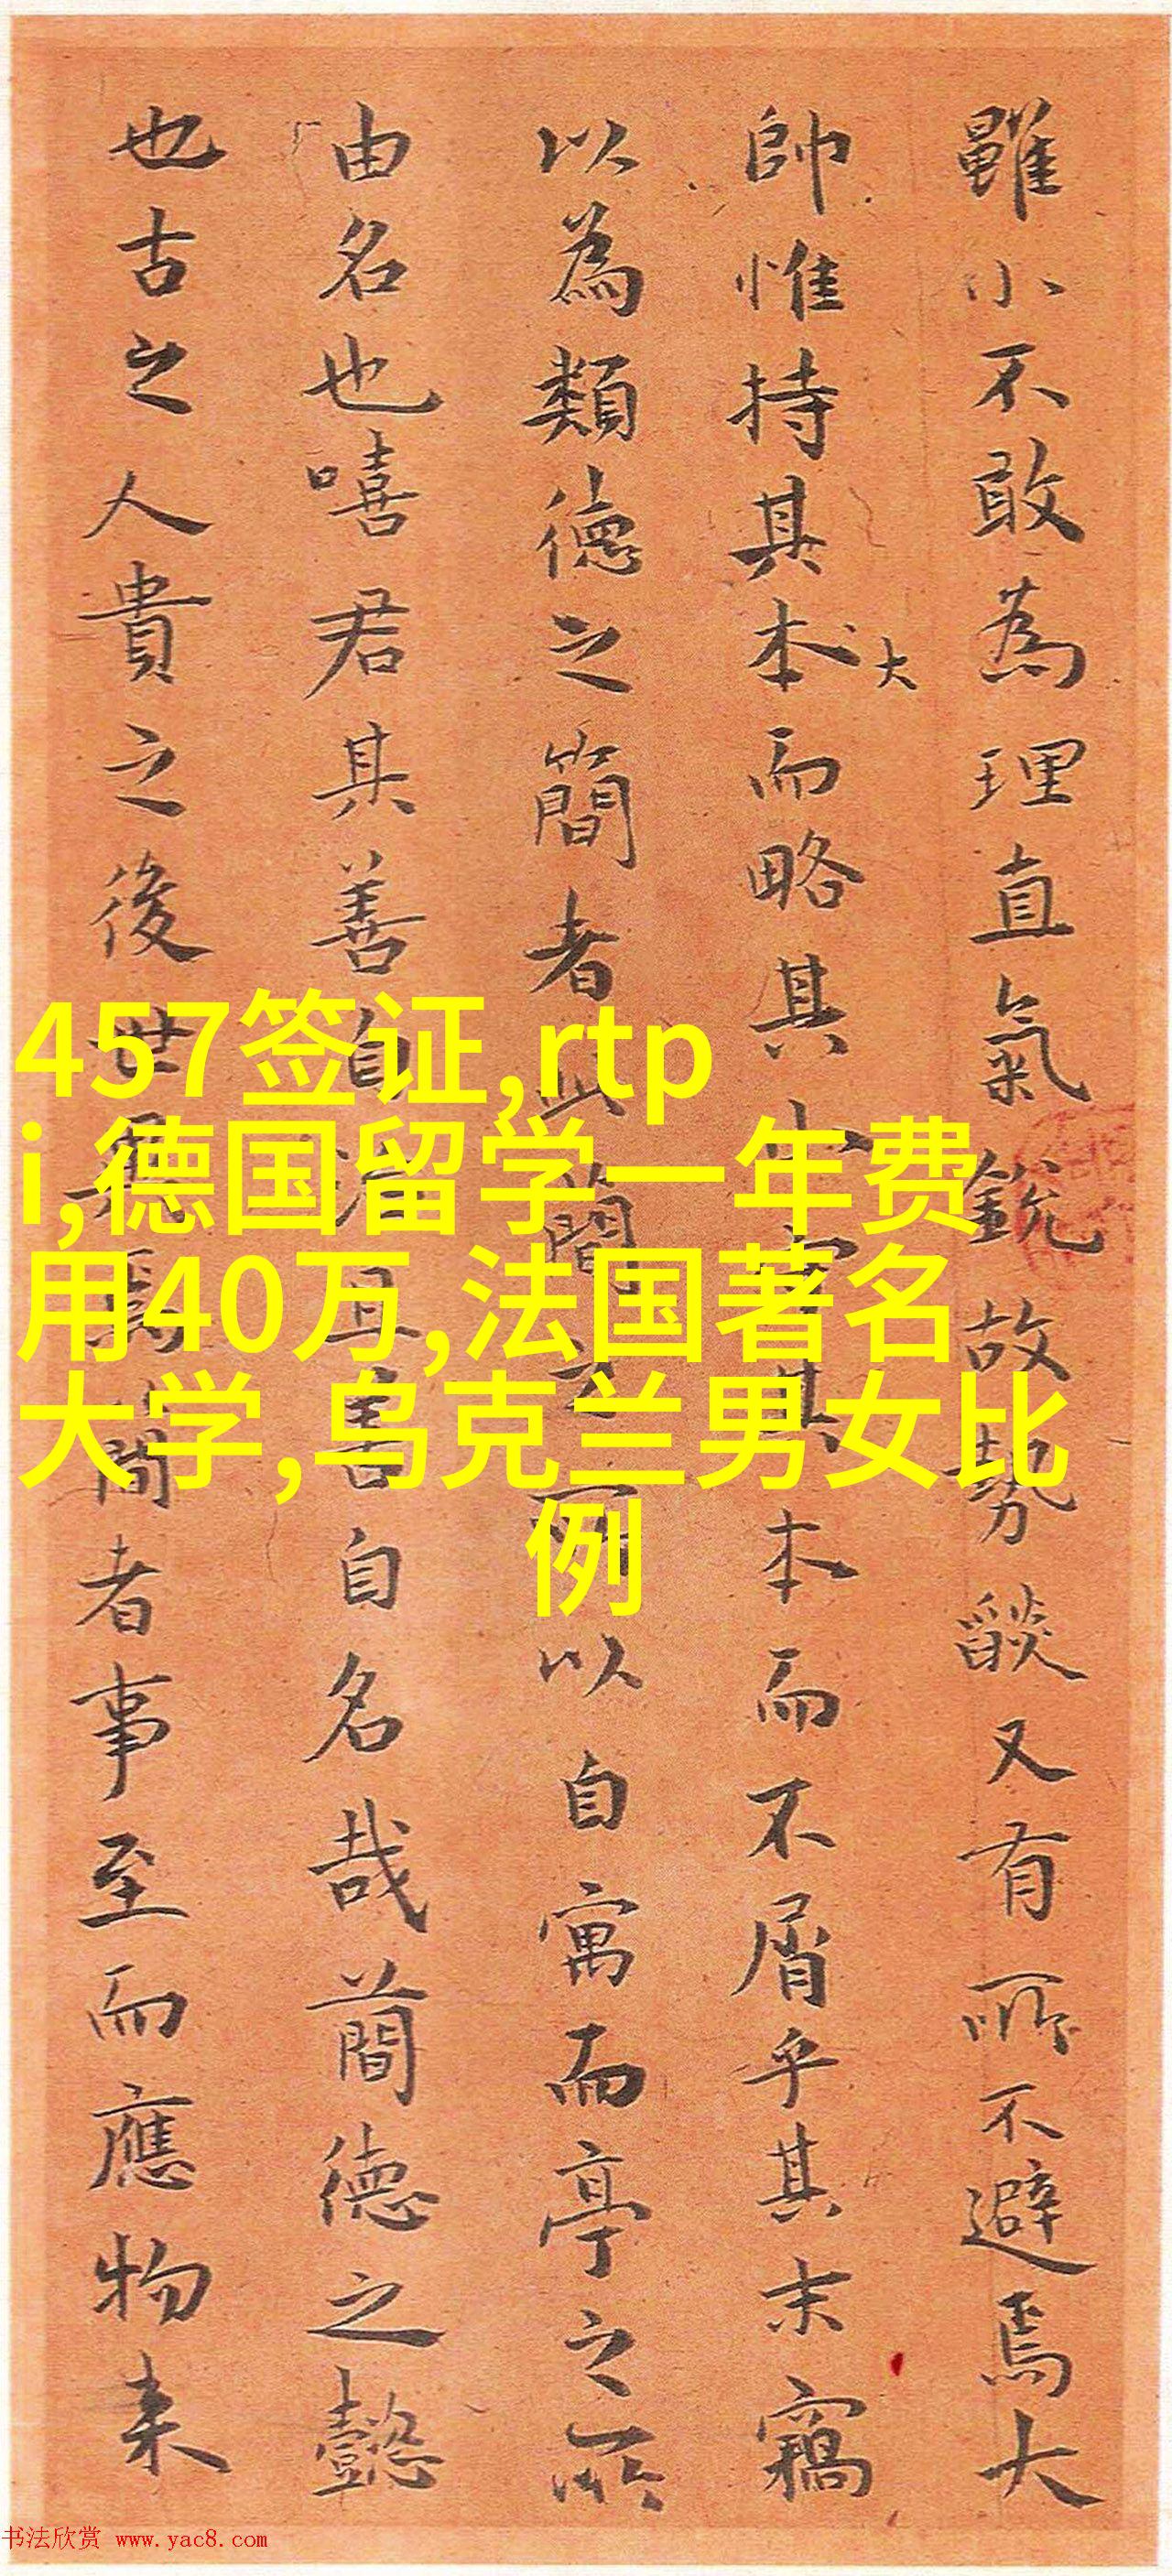 雖小不敢為理直氣銳故勢燄又有所不避焉大
帥惟持其本大而略其小守其本而不屑乎其末竊
以為類德之簡者此簡之所以自寓而亭之所
由名也嘻君其善自治且善自名哉蕳德之懿
也古之人貴之後世蕳者事至而應物来
457签证,rtp
i,德国留学一年费
用40万,法国著名
大学,乌克兰男女比
例
书法欣赏 www.yac8.com